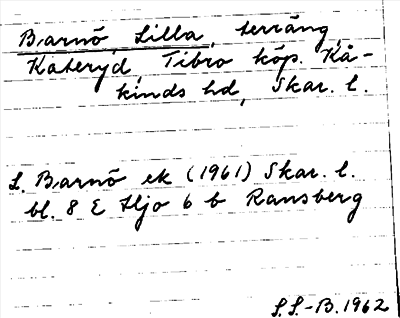 Barnö, Lilla, terräng,
Kateryd, Tibro köp. Kå-
kinds hd, Skar. l.
L. Barnö ek (1961) Skar. l.
bl. 8 E Hjo 6 b Ransberg
S.S.-B. 1962